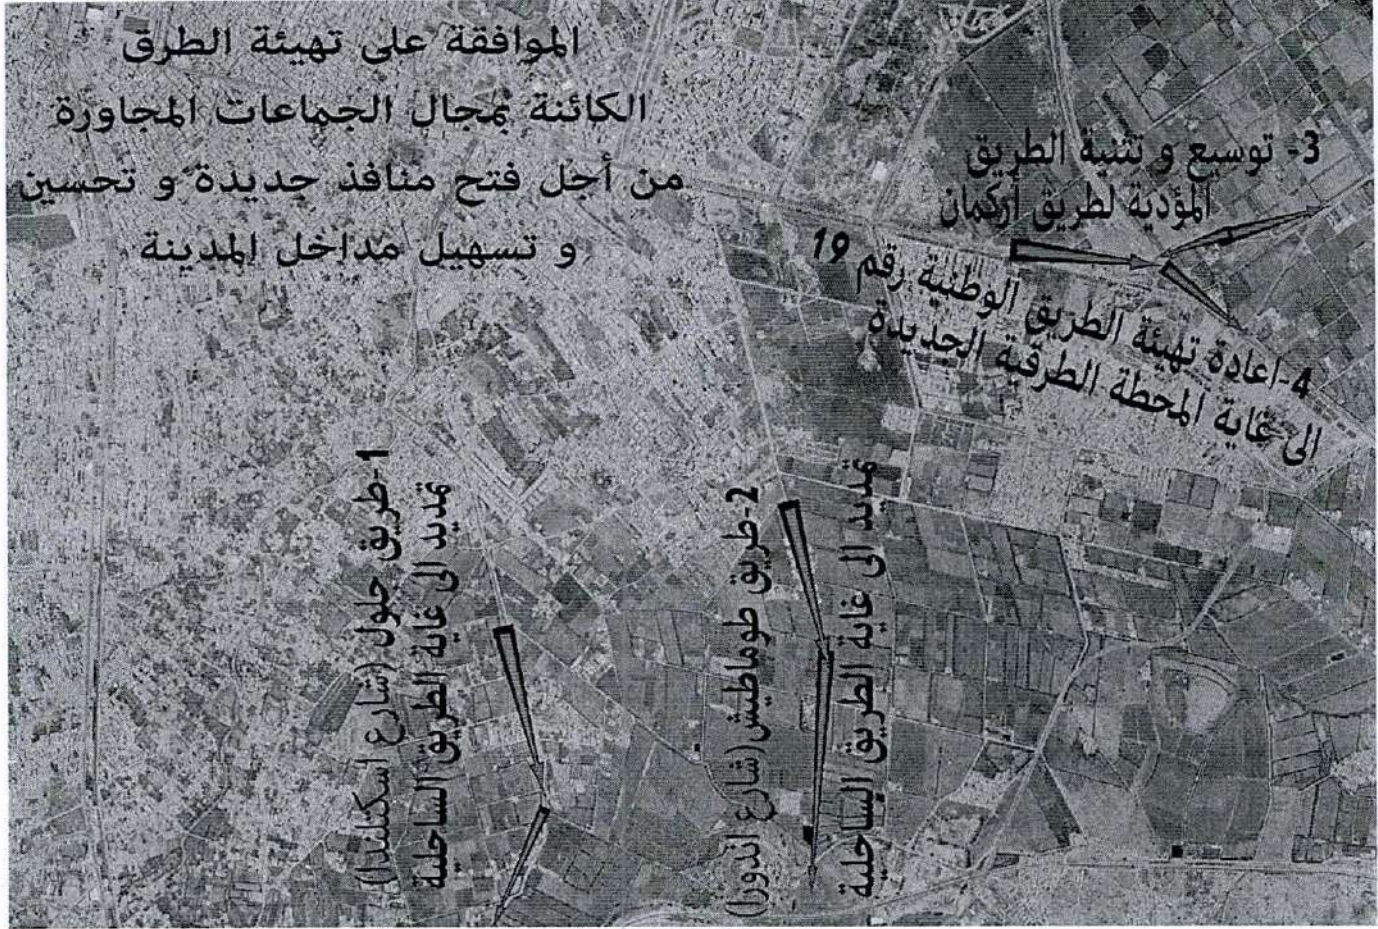 الموافقة على تهيئة الطرق
الكائنة بمجال الجماعات المجاورة
من أجل فتح منافذ جديدة و تحسين
و تسهيل مداخل المدينة
3- توسيع و تثنية الطريق
المؤدية لطريق أركمان
4-اعادة تهيئة الطريق الوطنية رقم 19
الى غاية المحطة الطرقية الجديدة
1-طريق حلول (شارع اسكتلندا)
تمديد الى غاية الطريق الساحلية
2-طريق طوماطيش(شارع اندورا)
تمديد الى غاية الطريق الساحلية